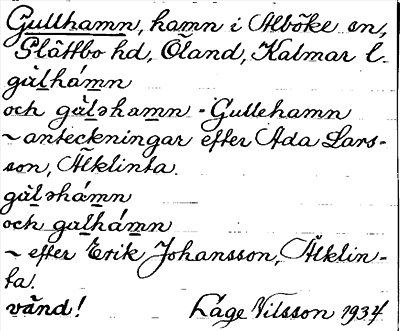 Gullhamn, hamn i Alböke sn,
Slättbo hd, Öland, Kalmar l.
gàlhámn
och gàləhamn - Gullehamn
~ anteckningar efter Ada Lars-
son, Älklinta.
gàləhámn
och galhámn
~ efter Erik Johansson, Älklin-
ta.
vänd! Låge Nilsson 1934